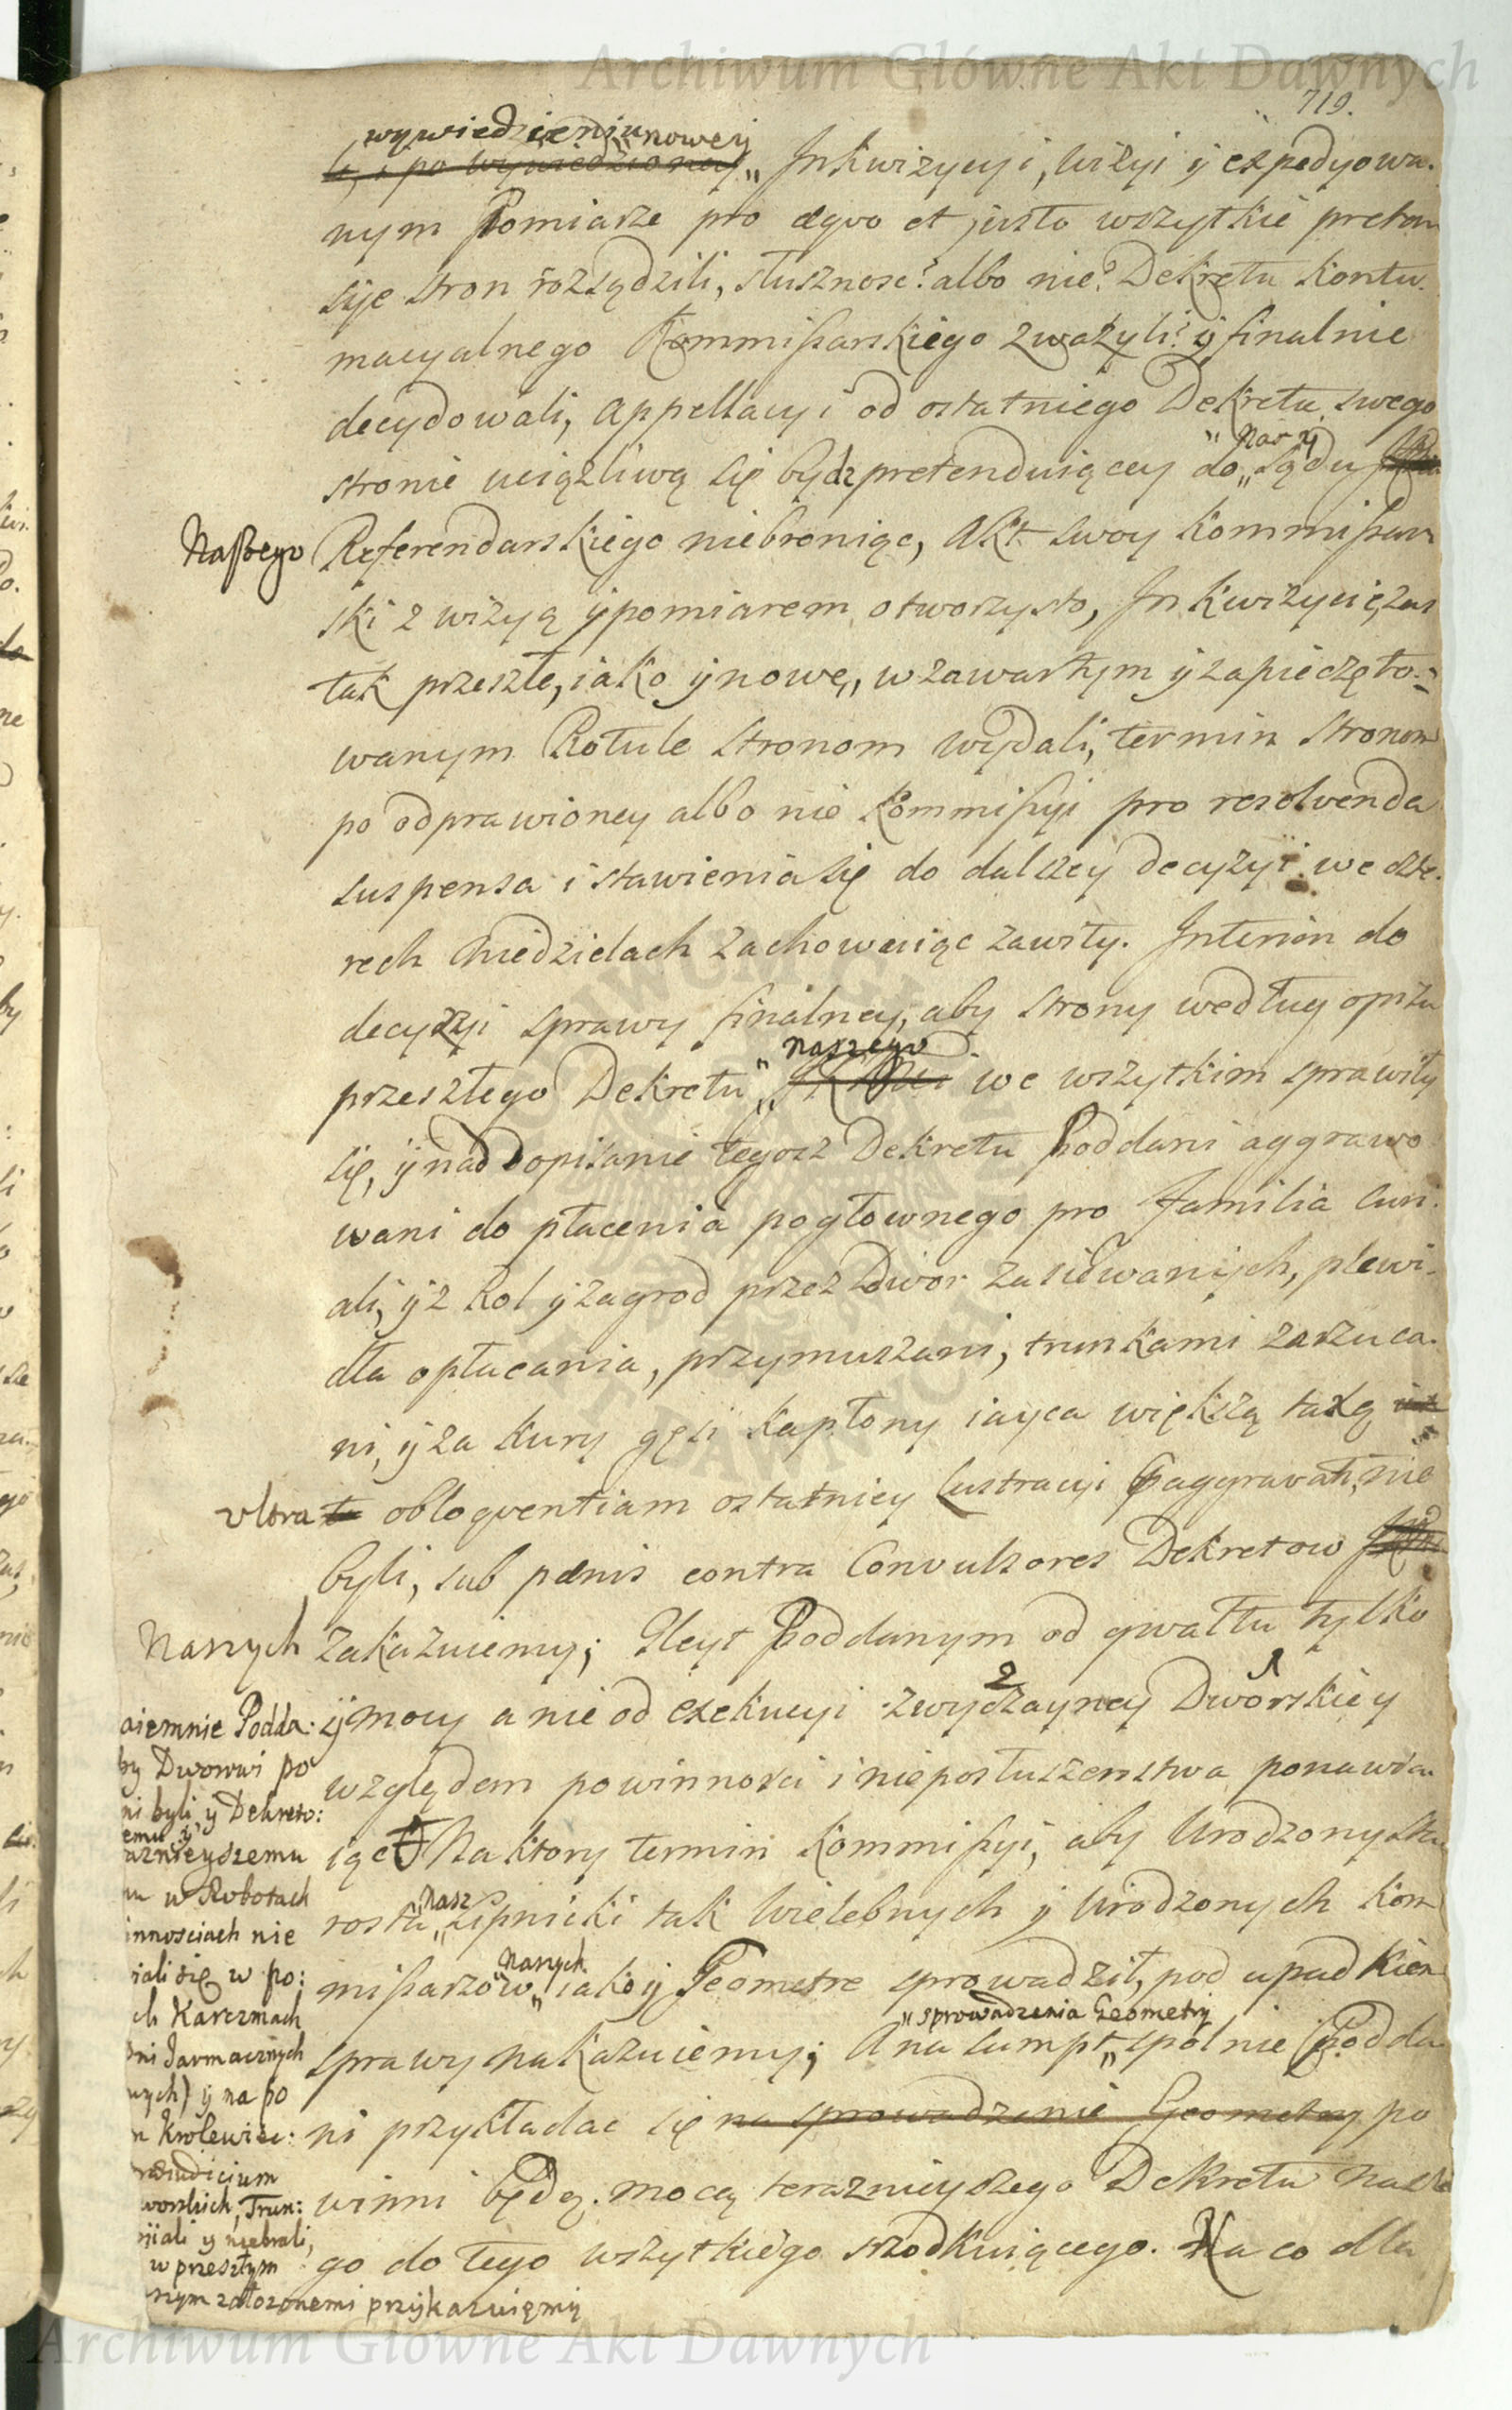 Archiwum Główne Akt Dawnych
719.
wywiedzieniu nowey
i, po wywiedzioney „ Inkwizycyi, wizyi ÿ expedyowa-
nym Pomiarze pro æqvo et justo wszytkie preten
syje stron rozsądzili, słusznosc? albo nie? Dekretu kontu-
macyalnego Kommissarskiego zwazyli? ÿ finalnie
decydowali, appellacyi od ostatniego Dekretu swego
„ Nar
stronie uciązliwą się bydz pretenduiącey do „ sądu
Naszego Referendarskiego niebroniąc, Akt swoy Kommissar
ski z wizyą ÿ pomiarem otworzysto, Inkwizycię zas
tak przeszłe, iako ÿ nowe, w zawartym ÿ zapieczęto-
wanym Rotule stronom wydali, termin stronom
po odprawioney albo nie Kommissyi pro resolvenda
suspensa i stawienia się do dalszey decyzyi we czte-
rech Niedzielach zachowuiąc zawity. Interim do
decyzyi sprawy finalney, aby strony według opisu
„ naszego
przeszłego Dekretu „ we wszytkim sprawiły
się, ÿ nad dopisanie tegosz Dekretu Poddani aggrawo
wani do płacenia pogłownego pro Familia Curi-
ali, ÿ z Rol ÿ zagrod przez Dwor zasiewanych, plewi-
dła opłucania, przymuszani, trunkami zarzuca-
ni, ÿ za kury gęsi kapłony iayca większą taxę
ultra obloqventiam ostatniey Lustracyi aggravati, nie
byli, sub pœnis contra Convulsores Dekretow
Naszych zakazuiemy; Gleyt Poddanym od gwałtu tylko
2 1
ÿ mocy a nie od exekucyi zwyczayney Dworskiey
względem powinnosci i nieposłuszenstwa ponawia
iąc Na ktory termin Kommissyi, aby Urodzony Sta
„ Nasz
rosta „ Lipnicki tak Wielebnych ÿ Urodzonych Kom
Naszych
missarzow „ iako ÿ Geometre sprowadził, pod upadkiem
„ sprowadzenia Geometry
sprawy nakazuiemy; A na sumpt „ spolnie Podda
ni przykładac się na sprowadzenie Geometry po
winni będą. mocą teraznieyszego Dekretu nasze
go do tego wszytkiego srzodkuiącego. Na co dla
aiemnie Podda:
by Dworowi po
ni byli, ÿ Dekreto:
emu ÿ
aznieyszemu
w Robotach
innosciach nie
iali się w po:
ch Karczmach
ni Jarmacznych
nych) ÿ na po
Krolewiec:
ræiudicium
worskich, Trun:
iiali ÿ niebrali,
w przeszłym
szym załozonemi przykazuięmÿ
Archiwum Główne Akt Dawnych